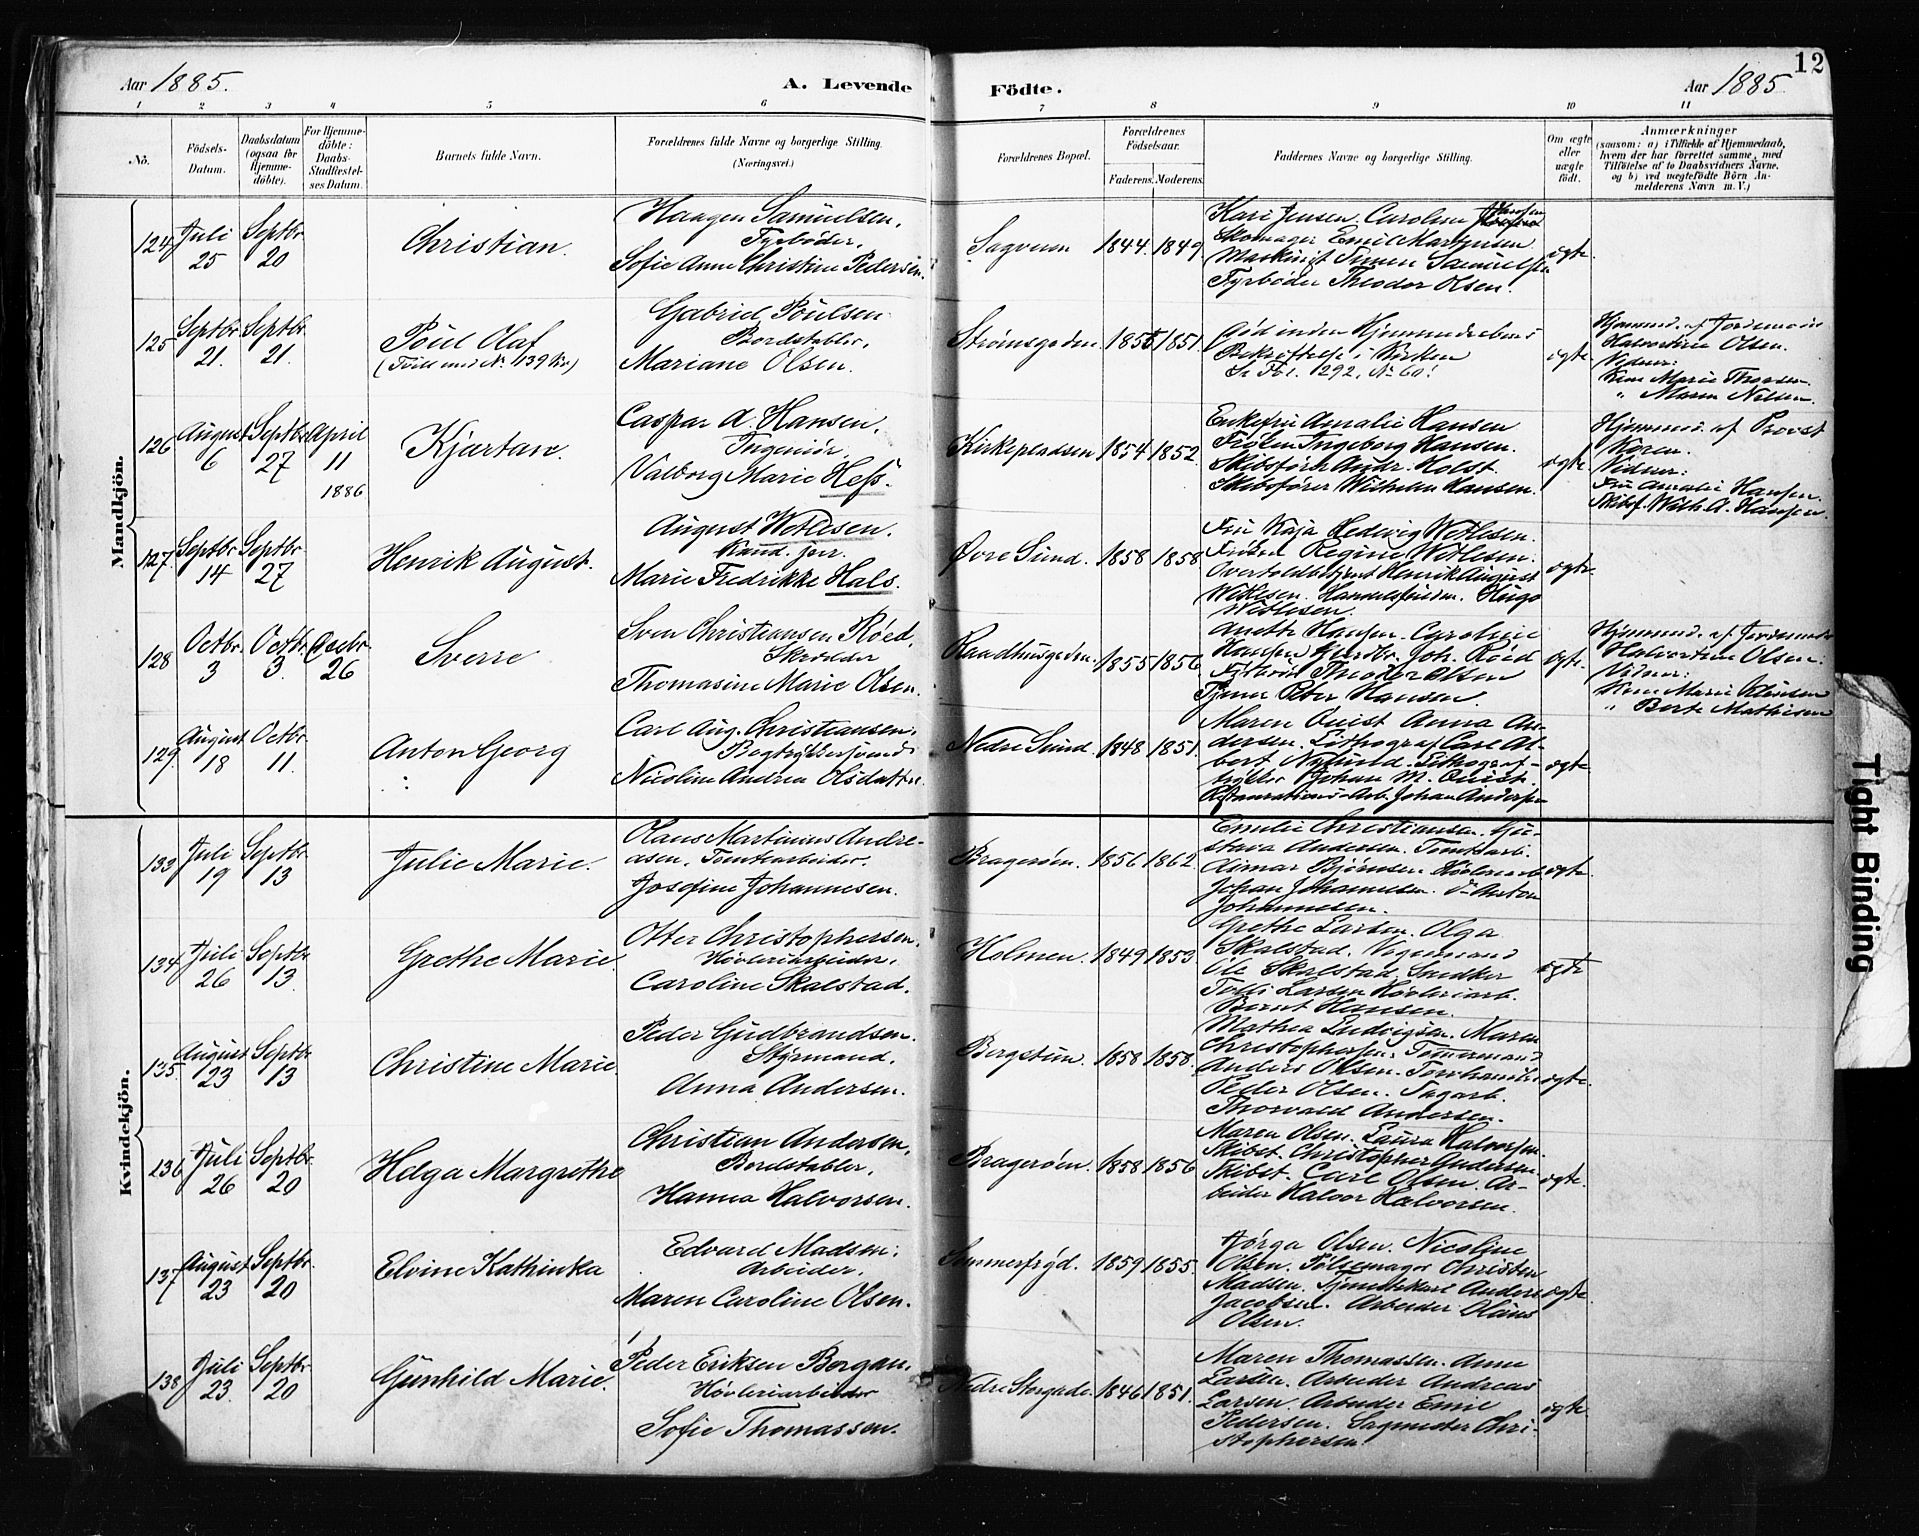 12
Aar 1885.
A. Levende
Födte.
Aar 1885.
1 2 3 4 5 6 7 8 9 10 11
No.
Födsels-
Datum.
Daabsdatum
(ogsaa for
Hjemme-
döbte).
For Hjemme-
döbte:
Daabs-
Stadfæstel-
ses Datum.
Barnets fulde Navn.
Forældrenes fulde Navne og borgerlige Stilling.
(Næringsvei.)
Forældrenes Bopæl.
Forældrenes
Födselsaar.
Faderens. Moderens.
Faddernes Navne og borgerlige Stilling.
Om ægte
eller
uægte
födt.
Anmærkninger
(saasom: a) i Tilfælde af Hjemmedaab,
hvem der har forrettet samme, med
Tilföielse af to Daabsvidners Navne.
og b) ved uægtefödte Börn An-
melderens Navn m. V.)
Mandkjön.
124
Juli
25
Septbr
20
Christian.
Haagen Samuelsen,
Fyrbøder,
Sofie Anne Christine Pedersen.
Sagveien
1844. 1849.
Kari Jensen. Caroline
Skomager Emil Martinsen
Maskinist Simen Samuelsen
Fyrbøder Theodor Olsen.
ægte.
125
Septbr
21.
Septbr
21.
Poul Olaf
(Tvill. med No. 139 Kv.)
Gabriel Poulsen
Bordstabler,
Mariane Olsen.
Strømsgaden.
1855 1851.
Død inden Hjemmedaabens
Bekræftelse i Kirken
Se Fol. 292, No 60.
ægte.
Hjemmed. af Jordemoder
Halvordine Olsen.
Vidner:
Kone Marie Thorsen.
" Maren Nilsen.
126
August
6
Septbr
27
April
11
1886
Kjartan.
Caspar A. Hansen,
Ingeniør,
Valborg Marie Hess.
Kirkepladsen
1854 1852.
Enkefru Amalie Hansen
Frøken Ingeborg Hansen.
Skibsfører Andr. Holst.
Skibsfører Wilhelm Hansen.
ægte
Hjemmed. af Provst
Koren.
Vidner:
Fru Amalie Hansen.
Skibsf. Wilh. A. Hansen.
127.
Septbr
14
Septbr
27
Henrik August.
August Wetlesen.
Kand. jur.
Marie Fredrikke Hals.
Øvre Sund.
1858 1858
Fru Kaja Hedevig Wetlesen.
Frøken Regine Wetlesen.
Overtoldbetjent Henrik August
Wetlesen. Handelsfuldm. Hugo
Wetlesen.
ægte.
128
Octbr.
3
Octbr
3.
Decbr.
26
Sverre
Sven Christiansen Røed,
Skrædder
Thomasine Marie Olsen.
Raadhusgaden.
1855 1856
Anette Hansen. Caroline
Hansen. Joh. Røed
Theodor Olsen
Tjener Peter Hansen.
ægte.
Hjemmed. af Jordemoder
Halvordine Olsen.
Vidner:
Kone Marie Klausen
" Berte Mathisen
129.
August
18
Octbr
11.
Anton Georg
Carl Aug. Christiansen,
Bogtrykkersvend
Nicoline Andrea Olsdatter.
Nedre Sund.
1848 1851.
Maren Quist. Anna An-
dersen. Lithograf Carl Al-
bert Nylund. Lithograf-
trykker Johan M. Quist.
Restaurations-Arb. Johan Andersen
ægte
Kvindekjön.
133
Juli
19
Septbr
13
Julie Marie.
Hans Martinius Andre-
asen, Tomtearbeider,
Josefine Johannesen.
Bragerøen.
1856 1862.
Emilie Christiansen. Gu-
stava Andersen. Tomtearb.
Asmar Bjørnsen. Høvleriarb.
Johan Johannesen. do Anton
Johannesen.
ægte.
134
Juli
26
Septbr.
13.
Grethe Marie.
Otter Christophersen,
Høvleriarbeider,
Caroline Skalstad.
Holmen.
1849 1853.
Grethe Larsen. Olga
Skalstad. Vognmand
Ole Skalstad. Snedker
Larsen Høvleriarb.
Bernt Hansen.
ægte
135.
August
23
Septbr
13
Christine Marie.
Peder Gudbrandsen.
Styrmand,
Anna Andersen.
Bergstien.
1858 1858.
Mathea Ludvigsen. Maren
Christophersen. Tømmermand
Anders Olsen.
Peder Olsen. Sagarb.
Thorvald Andersen.
ægte.
136
Juli
26
Septbr.
20
Helga Margrethe
Christian Andersen,
Bordstabler,
Hanna Halvorsen.
Bragerøen.
1858 1856
Maren Olsen. Laura Halvorsen.
Skibst. Christopher Andersen.
Skibst. Carl Olsen. Ar-
beider Halvor Halvorsen.
ægte.
137
August
23
Septbr.
20
Elvine Kathinka
Edvard Madsen,
Arbeider,
Maren Caroline Olsen.
Sommerfryd.
1859 1855.
Jørga Olsen. Nicoline
Olsen. Pølsemager Christen
Madsen. Tjenestekarl Anders
Jacobsen. Arbeider Olaus
Olsen.
ægte.
138
Juli
23.
Septbr
20
Gunhild Marie.
Peder Eriksen Bergan,
Høvleriarbeider
Sofie Thomassen.
Nedre Storgade.
1846 1851.
Maren Thomassen. Anne
Larsen. Arbeider Andreas
Larsen. Arbeider Emil
Pedersen. Sagmester Chri-
stophersen.
ægte.
Tight Binding